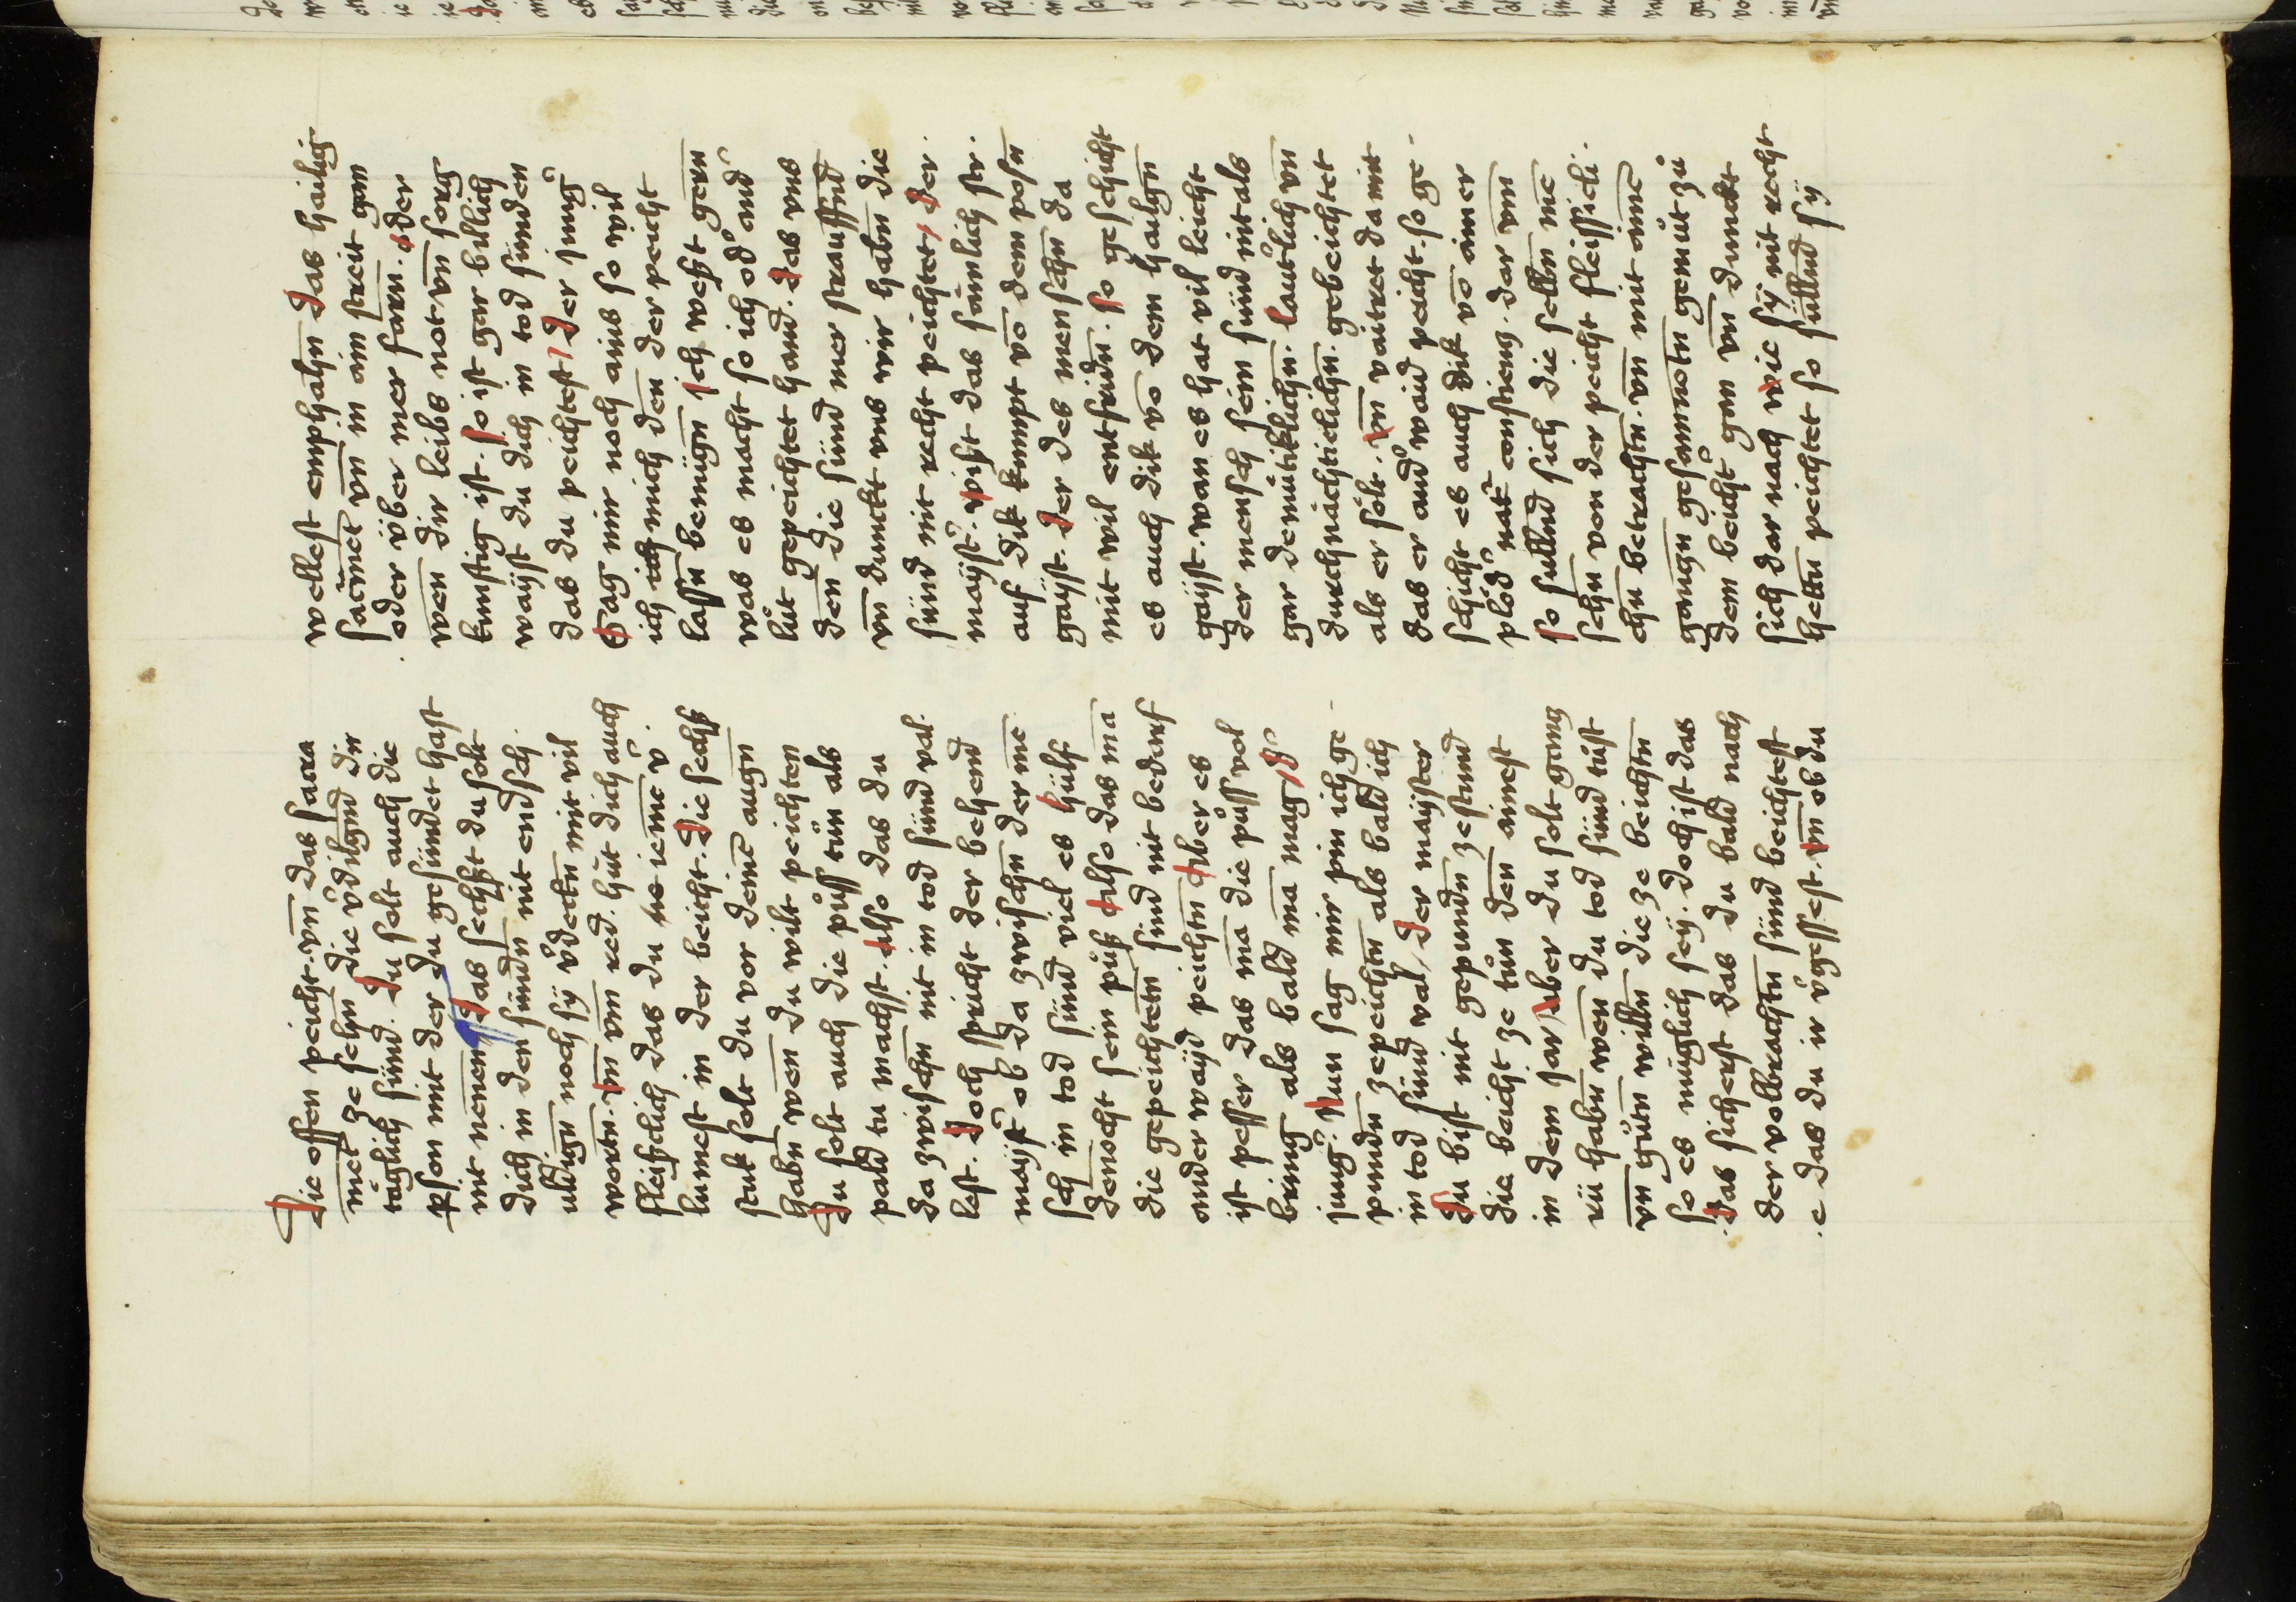 Die offen peicht · vn̄ das sacra
met̄ ze sehn̄ die v̊dilgn̄d dir
täglich sünd · Du solt auch die
p̱son mit der du gesündet hast
nit nenen̄ Das sechßt du solt
dich in den sündn̄ nit endsch
uldign̄ noch sÿ v̊dekn̄ mit vil
wortn̄ · vn̄ vm̄ red · hüt dich auch
fleißclich das du ne iem̄c v̊
lumest in der beicht · Die sechß
stuk solt du vor deinē augn̄
habn̄ wen̄ du wilt peichten
Du solt auch die půss tůn als
pald tu machst · Also das du
da zwischn̄ nit in tod sünd val
lest · Doch spricht der behend
mayst̊ ob da zwischn̄ der mē
sch in tod sünd viel es hülf
denocht sein půß Also das mā
die gepeichtetn̄ sünd nit bedarf
onder wayd peichtn̄ Aber es
ist pesser das mā die půss vol
bring als bald mā mag / D̊
jung̊ Nun sag mir pin ich ge
pundn̄ zepeichtn̄ als bald ich
in tod sünd val / Der mayster
Du bist nit gepundn̄ zestund
die beicht ze tůn den̄ ainest
in dem jar / Aber du solt gancz
rü habn̄ wen̄ du tod sünd tůst
vn̄ gůtn̄ willn̄ die ze beichtn̄
so es müglich seÿ · doch ist das
Das sicherst das du bald nach
der volbrachtn̄ sünd beichtest
e das du ir v̊gessest · vn̄ ob du
wellest emphahn̄ das hailig
sacrmet̄ vn̄ in ain streit gan
oder v̈ber mer farn̄ · oder
wen̄ dir leibs not vn̄ sorg
kunftig ist · so ist gar billich
wayst du dich in tod sünden
das du peichtest / Der jung̊
Sag mir noch ains so wil
ich ich mich den̄ der peicht
lassn̄ benügn̄ ich weßt gern̄
was es macht so ich od̊ and̊
lüt gepeichtet hand · Das vns
den̄ die sünd mer straussn̄d
vn̄ dunckt vns wir habn̄ die
sünd nit recht peichtet / Der
mayst̊ · wißt das sämlich str
auf dik kumpt vō dem posn̄
gayst · Der des menschn̄ da
mit wil entsridn̄ · so geschicht
es auch dik vō dem hailgn̄
gayst · wan es hat vil leicht
der mensch sein sünd nit als
gar demütiklichn̄ · lauterlich vn̄
durchnächtiklichn̄ · gebeichtet
als er sölt · vn̄ vaitret da mit
das er and̊waid peicht · so ge
schicht es auch dik vō ainer
plöd̊ nat̊ constienz · dar vm̄
so sullnd sich die selbn̄ mē
schn̄ von der peicht fleissicli
chn̄ betrachtn̄ · vn̄ mit aim̄e
ganczn̄ gesamnotn̄ gemüt zů
dem beicht̊ gan vn̄ dunckt
sich dar nach wie sÿ nit recht
hettn̄ peichtet so süllnd sÿ